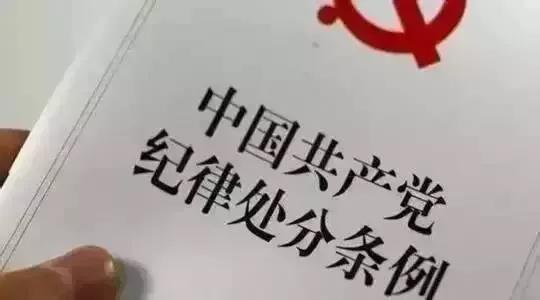 中国共产党
纪律处分条例